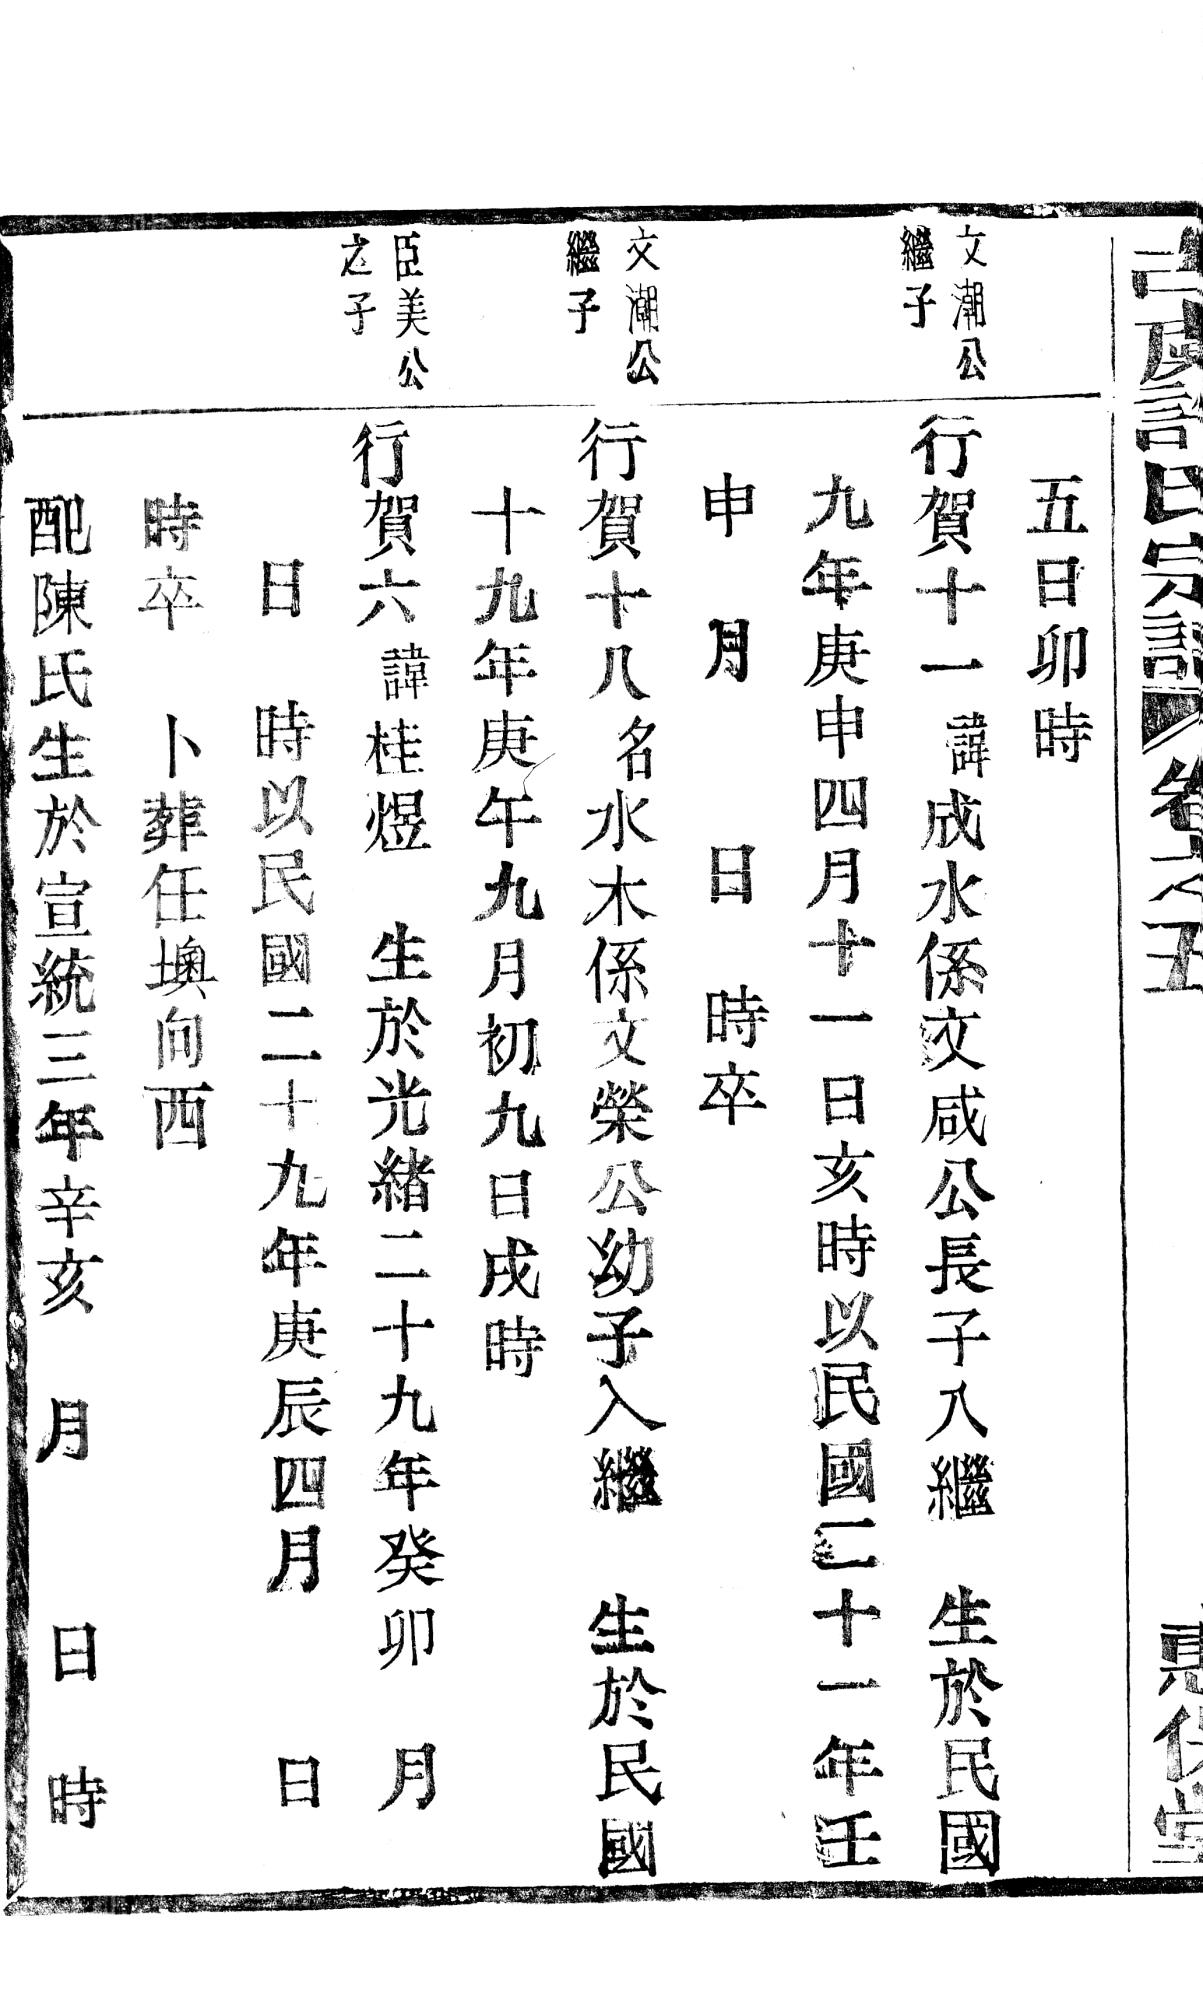 氏宗譜 卷之五
五日卯時
文潮公
繼子
行賀十一 諱成水係文咸公長子入繼 生於民國
九年庚申四月十一日亥時以民國二十一年壬
申 月 日 時卒
文潮公
繼子
行賀十八 名水木係文榮公幼子入繼 生於民國
十九年庚午九月初九日戌時
臣美公
之子
行賀六 諱桂煜 生於光緒二十九年癸卯 月
日 時以民國二十九年庚辰四月 日
時卒 卜葬任墺向西
配陳氏生於宣統三年辛亥 月 日 時